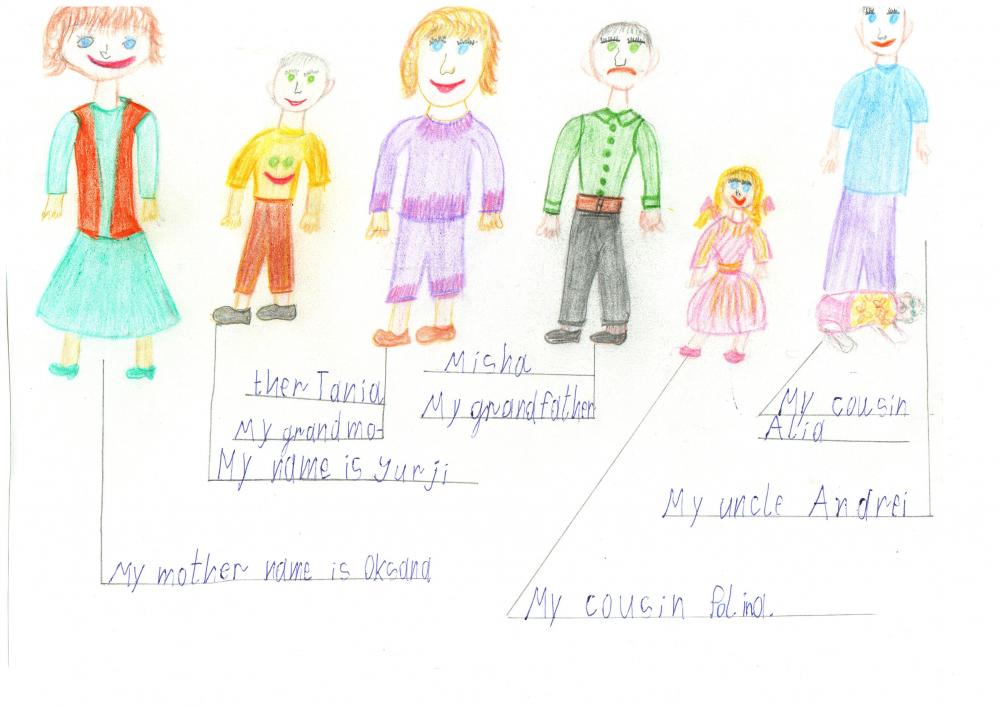 Misha
My grandfather
ther Tania
My grandmo-
My name is Yurji
My cousin
Alia
My uncle Andrei
My mother name is Oksana
My cousin Polina.